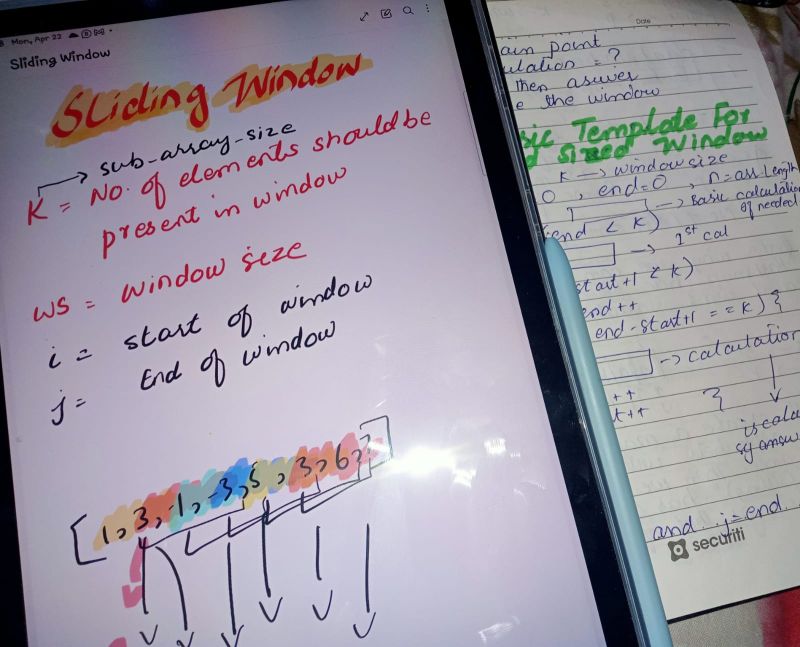 Mon, Apr 22
Sliding Window
Sliding Window
sub-array-size
K = No. of elements should be
present in window
WS = window size
i = start of window
j = End of window
[1, 3, -1, -3, 5, 3, 6, 7]
Date
ain point
ulation = ?
then asuver
e the window
sic Template For
d sized Window
K → window size
0, end=0, n=arr length
→ Basic calculation
if needed
end < K)
→ 1st cal
start+1 < K)
end++
end-start+1 == K) {
→ calculation
++
t++ }
and j=end
securiti